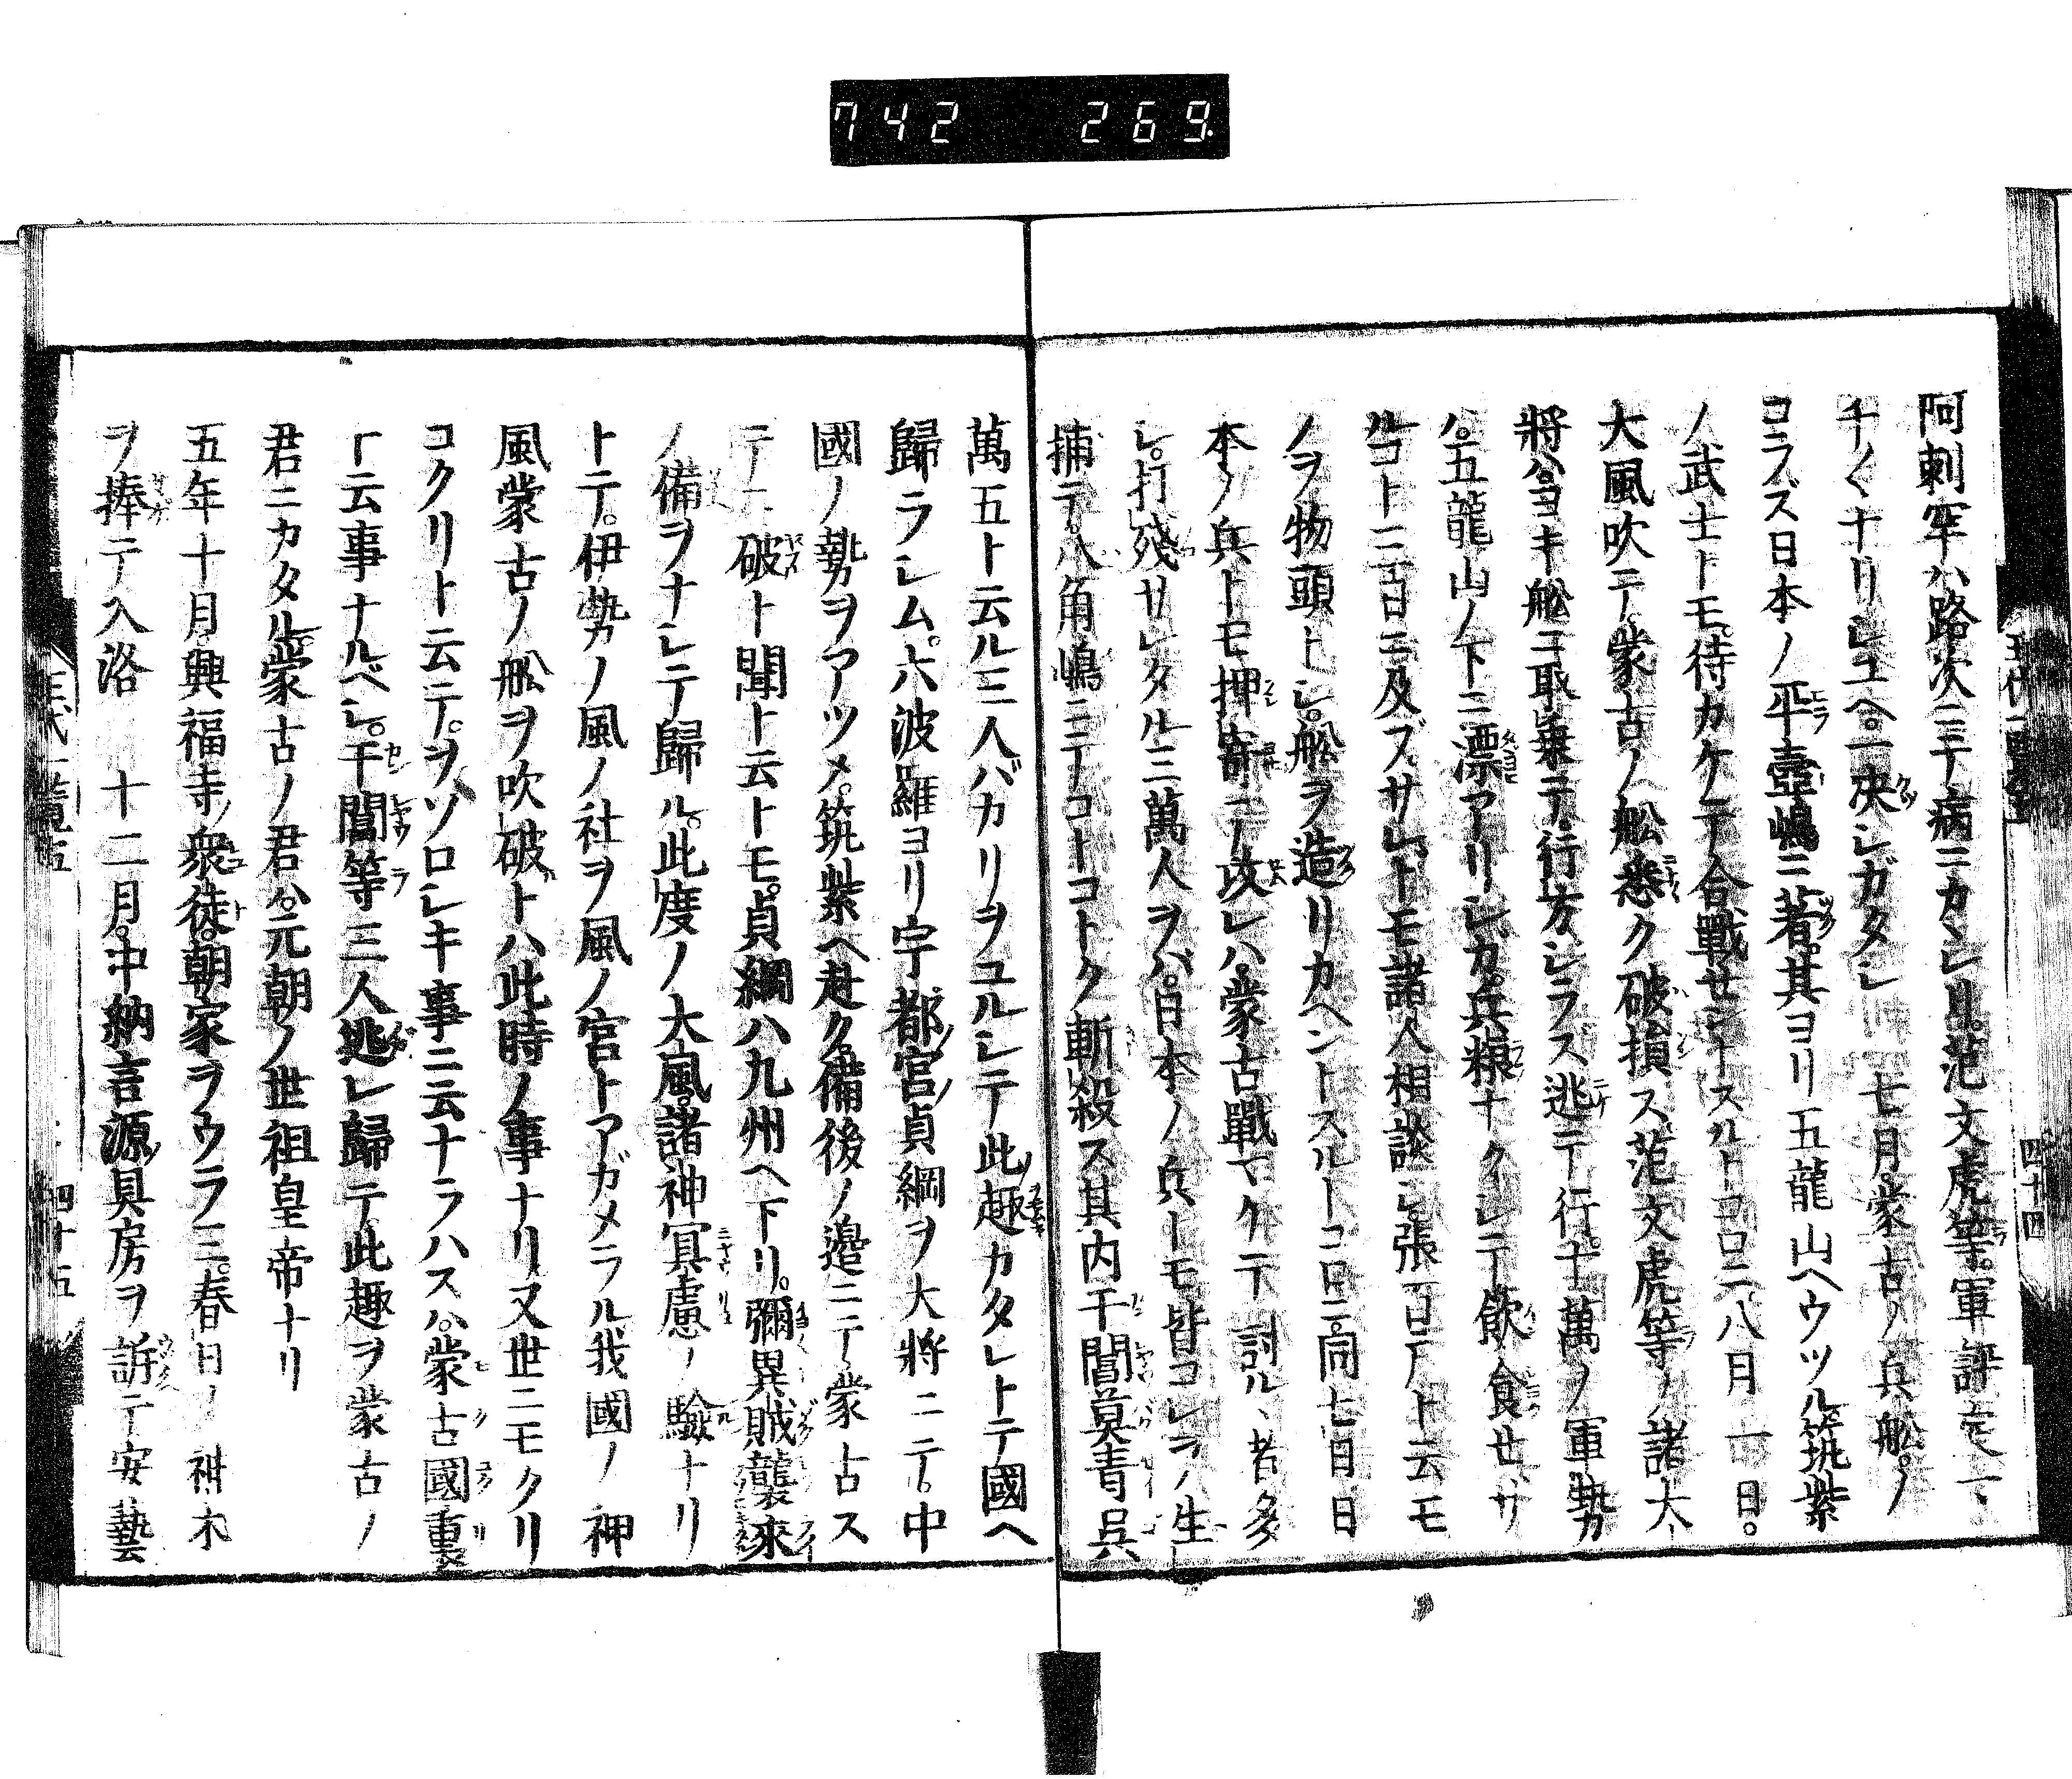 742 269.
阿刺罕ハ路次ニテ病ニカヽレリ。范文虎等。軍評定一、
千〱ナリシユヘ。一決シガタシ 七月。蒙古ノ兵船。ノ
コラズ日本ノ平壺嶋ニ著。其ヨリ五龍山ヘウツル筑紫
ノ武士トモ。待カケテ合戰セントスルトコロニ。八月一日。
大風吹テ。蒙古ノ舩悉ク破損ス。范文虎等ノ諸大
將ハ。ヨキ舩ニ取乗テ。行方シラス逃テ行。十萬ノ軍勢
ハ。五龍山ノ下ニ漂アリシガ。兵粮ナクシテ飲食セザ
ルコト三日ニ及ブ。サレトモ諸人相談シ。張百戸ト云モ
ノヲ物頭トシ。舩ヲ造リカヘントスルトコロニ。同七日。日
本ノ兵トモ押寄テ攻レハ。蒙古戰マケテ討ル、者多
シ。打殘サレタル三萬人ヲバ。日本ノ兵トモ皆コレヲ生
捕テ。八角嶋ニテコトコトク斬殺ス其内于閶莫青呉
萬五ト云ル三人バカリヲユルシテ此趣カタレトテ國ヘ
歸ラシム。六波羅ヨリ宇都宮貞綱ヲ大將ニテ。中
國ノ勢ヲアツメ。筑紫ヘ赴ク。備後ノ邉ニテ蒙古ス
テニ破ト聞ト云トモ。貞綱ハ九州ヘ下リ。彌異賊襲來
ノ備ヲナシテ歸ル。此度ノ大風。諸神冥慮ノ驗ナリ
トテ。伊勢ノ風ノ社ヲ風ノ宮トアガメラル我國ノ神
風蒙古ノ舩ヲ吹破トハ此時ノ事ナリ又世ニモクリ
コクリト云テ。ヲソロシキ事ニ云ナラハスハ。蒙古國重
ト云事ナルベシ。于閶等三人逃レ歸テ。此趣ヲ蒙古ノ
君ニカタル。蒙古ノ君ハ。元朝ノ世祖皇帝ナリ
五年十月。興福寺ノ衆徒。朝家ヲウラミ。春日ノ神木
ヲ捧テ入洛 十二月。中納言源具房ヲ訴テ安藝
四十四
四十五